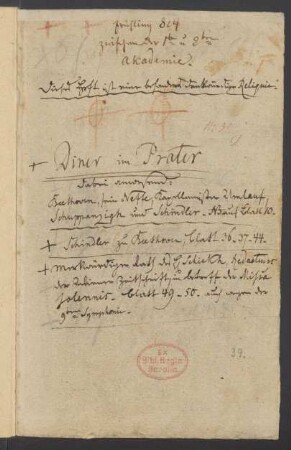 Frühling 824
zwischen der 1ten u 2ten
Akademie.
Dieses Heft ist eine besonders denkwürdige Reliquie.
+ Diner im Prater
dabei anwesend:
Beethoven, sein Neffe, Kapellmeister Umlauf,
Schuppanzigh und Schindler. Blatt 10.
+ Schindler zu Beethoven, Blatt 36-37-44.
+ Merkwürdiger Rath des H Schickh, Redacteur
der Wiener Zeitschrift, in betreff der Missa
solennis. Blatt 49-50. auch wegen der
9ten Symphonie.
29.
Ex
Berolin.